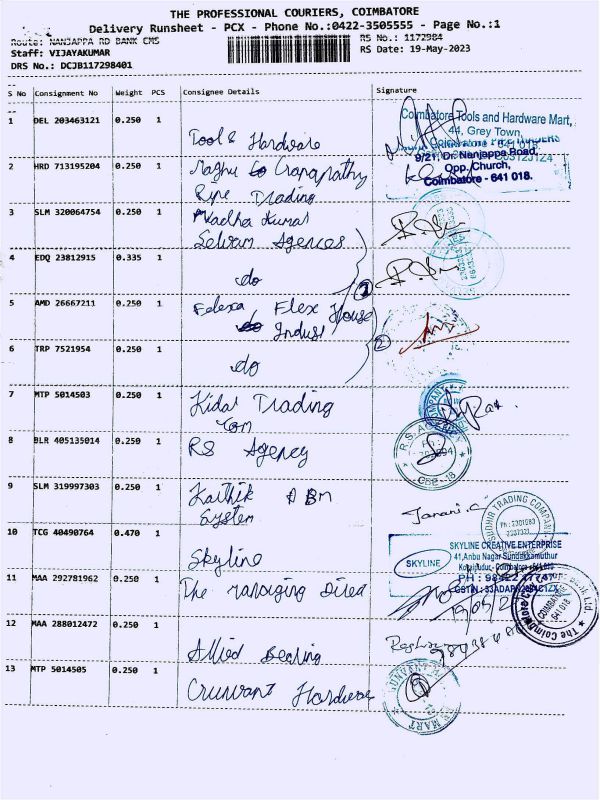 THE PROFESSIONAL COURIERS, COIMBATORE
Delivery Runsheet - PCX - Phone No.:0422-3505555 - Page No.:1
Route: NANJAPPA RD BANK CMS
RS No.: 1172984
Staff: VIJAYAKUMAR
RS Date: 19-May-2023
DRS No.: DCJB117298401
S No Consignment No Weight PCS Consignee Details Signature
1 DEL 203463121 0.250 1
Tool & Hardware
Coimbatore Tools and Hardware Mart,
44, Grey Town,
2 HRD 713195204 0.250 1
Raghu Ganapathy
Pipe Trading
9/21, Dr. Nanjappa Road,
Opp. Church,
Coimbatore - 641 018.
3 SLM 320064754 0.250 1
Kumar
Selvam Agences
4 EDQ 23812915 0.335 1
do
1
5 AMD 26667211 0.250 1
Flex House
Indust
2
6 TRP 7521954 0.250 1
do
7 MTP 5014503 0.250 1
Kidas Trading
Com
8 BLR 405135014 0.250 1
RS Agency
R.S. A
CBE-18
9 SLM 319997303 0.250 1
Karthik
System
SUDHIR TRADING COMPANY
10 TCG 40490764 0.470 1
Skyline
SKYLINE
SKYLINE CREATIVE ENTERPRISE
41, Anbu Nagar Sundakkamuthur
11 MAA 292781962 0.250 1
The managing Direct
COIMBATORE
641 018
12 MAA 288012472 0.250 1
Allied Bearing
13 MTP 5014505 0.250 1
Crunvant Hardware
MART